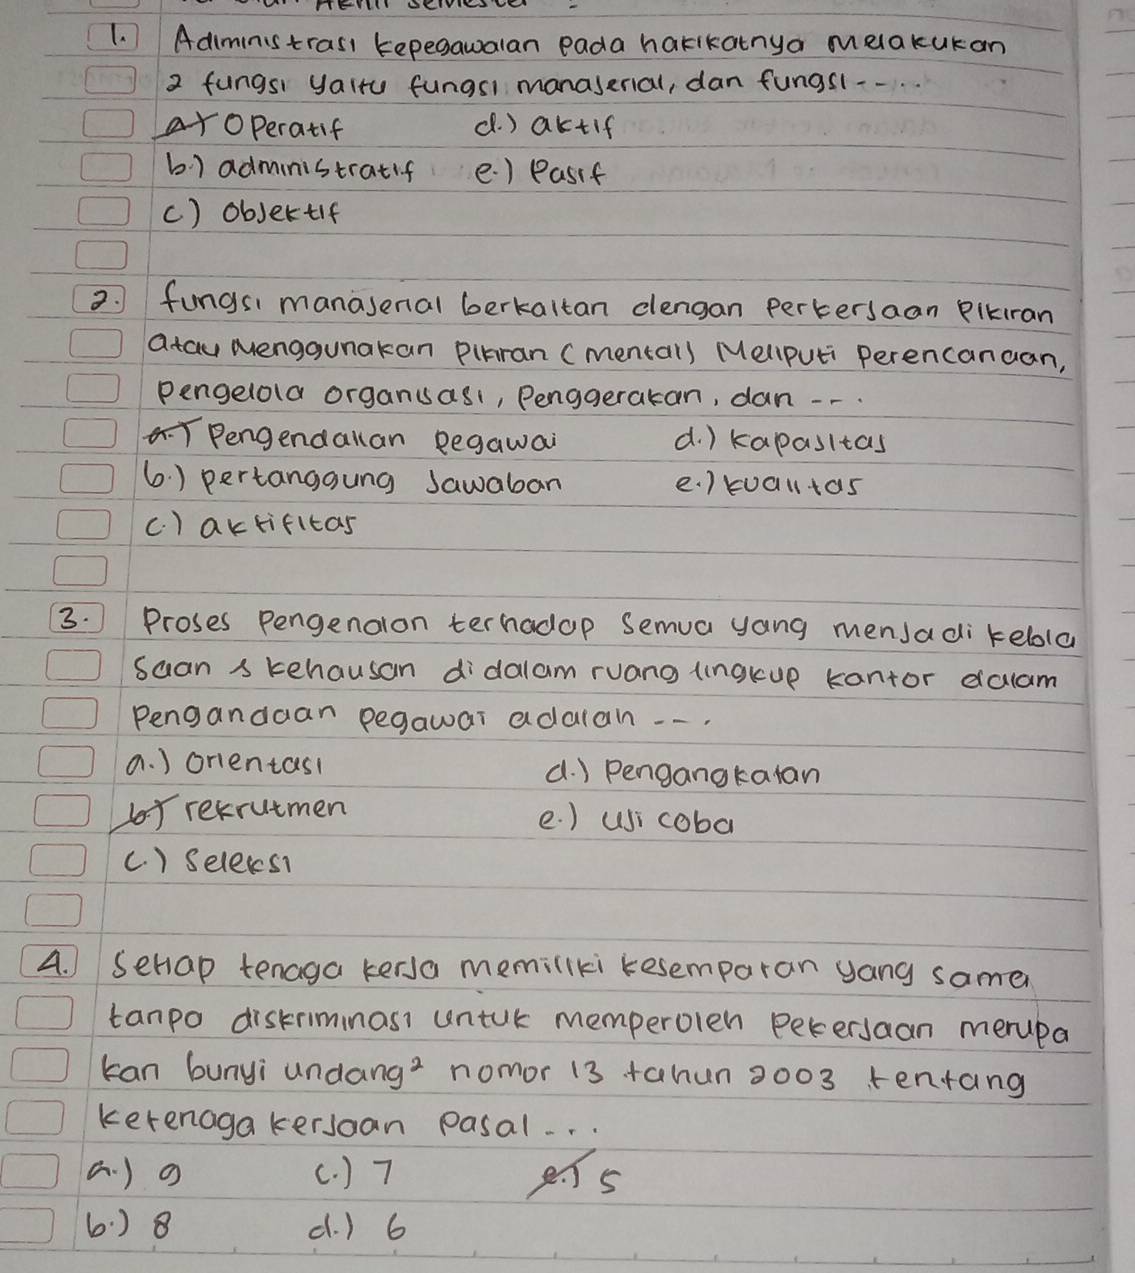 1. Adiministrasi kepegawaian pada hakikatnya melakukan
2 fungsi yaitu fungsi manajerial, dan fungsi.....
a.) operatif d.) aktif
b.) administratif e.) pasif
c.) objektif
2. fungsi manajerial berkaitan dengan perkerjaan pikiran
atau menggunakan pikiran (mental) meliputi perencanaan,
pengelola organisasi, penggerakan, dan ---.
a.) pengendalian pegawai d.) kapasitas
b.) pertanggung jawaban e.) kualitas
c.) aktifitas
3. Proses pengenalan terhadap semua yang menjadi kebia
saan s kehausan didalam ruang lingkup kantor dalam
pengandaan pegawai adalah ---.
a.) orientasi d.) pengangkatan
b.) rekrutmen e.) uji coba
c.) seleksi
4. setiap tenaga kerja memiliki kesempatan yang sama
tanpa diskriminasi untuk memperoleh pekerjaan merupa
kan bunyi undang² nomor 13 tahun 2003 tentang
ketenaga kerjaan pasal...
a.) 9 c.) 7 e.) 5
b.) 8 d.) 6